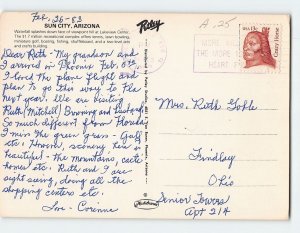 Feb, 26-83
SUN CITY, ARIZONA
Waterfall splashes down face of viewpoint hill at Lakeview Center.
The $1.7 million recreation complex offers tennis, lawn bowling,
miniature golf, boating, fishing, shuffleboard, and a
and crafts building.
Dear Ruth - My grandson and
I arrived in Phoenix Feb. 6th,
I loved the plane flight and
plan to go this way to Fla
next year. We are visiting
Ruth (Mitchell) Browning and husband
So much different from Florida
I miss the green grass - Golf
etc. However, scenery here is
beautiful - The mountains, cacti
homes etc. Ruth and I are
sight seeing, doing all the
shopping centers etc.
Love - Corinne
Petley
A.25
USA 13c
Crazy Horse
MORE
THE MORE
HEART F
Mrs. Ruth Goble
Findley
Ohio
Senior Towers
Apt 214